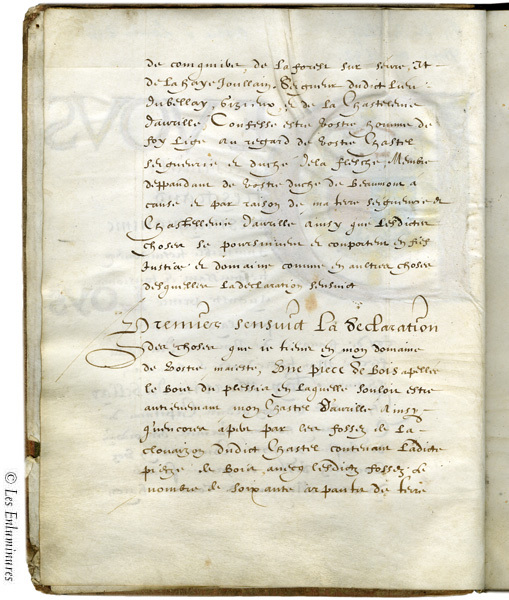 de comquive, de la forest sur sevre, Et
de la haye Joullain, Seigneur dudict lieu
du bellay, gizieux, et de la Chastelenie
d'avrille Confesse estre vostre homme de
foy lige au regard de vostre Chastel
seigneurie et duche de la flesche Membre
deppandant de vostre duche de Beaumont a
cause et par raison de ma terre seigneurie et
Chastellenie d'avrille Ainsy que lesdictes
choses se poursuivent et comportent en fiefs
Justice et domaine comme en aultres choses
desquelles la declaration sensuict
Premier sensuict La declaration
des choses que je tiens en mon domaine
de Vostre maieste, Une piece de Bois apellee
le Bois du plessis en laquelle souloit estre
antiennement mon Chastel d'avrille Ainsy
quencores apert par les fossez de la
clouaizon dudict Chastel contenant ladicte
pieze de Bois, avecq lesdictz fossez le
nombre de soixante arpantz de terre
© Les Enluminures